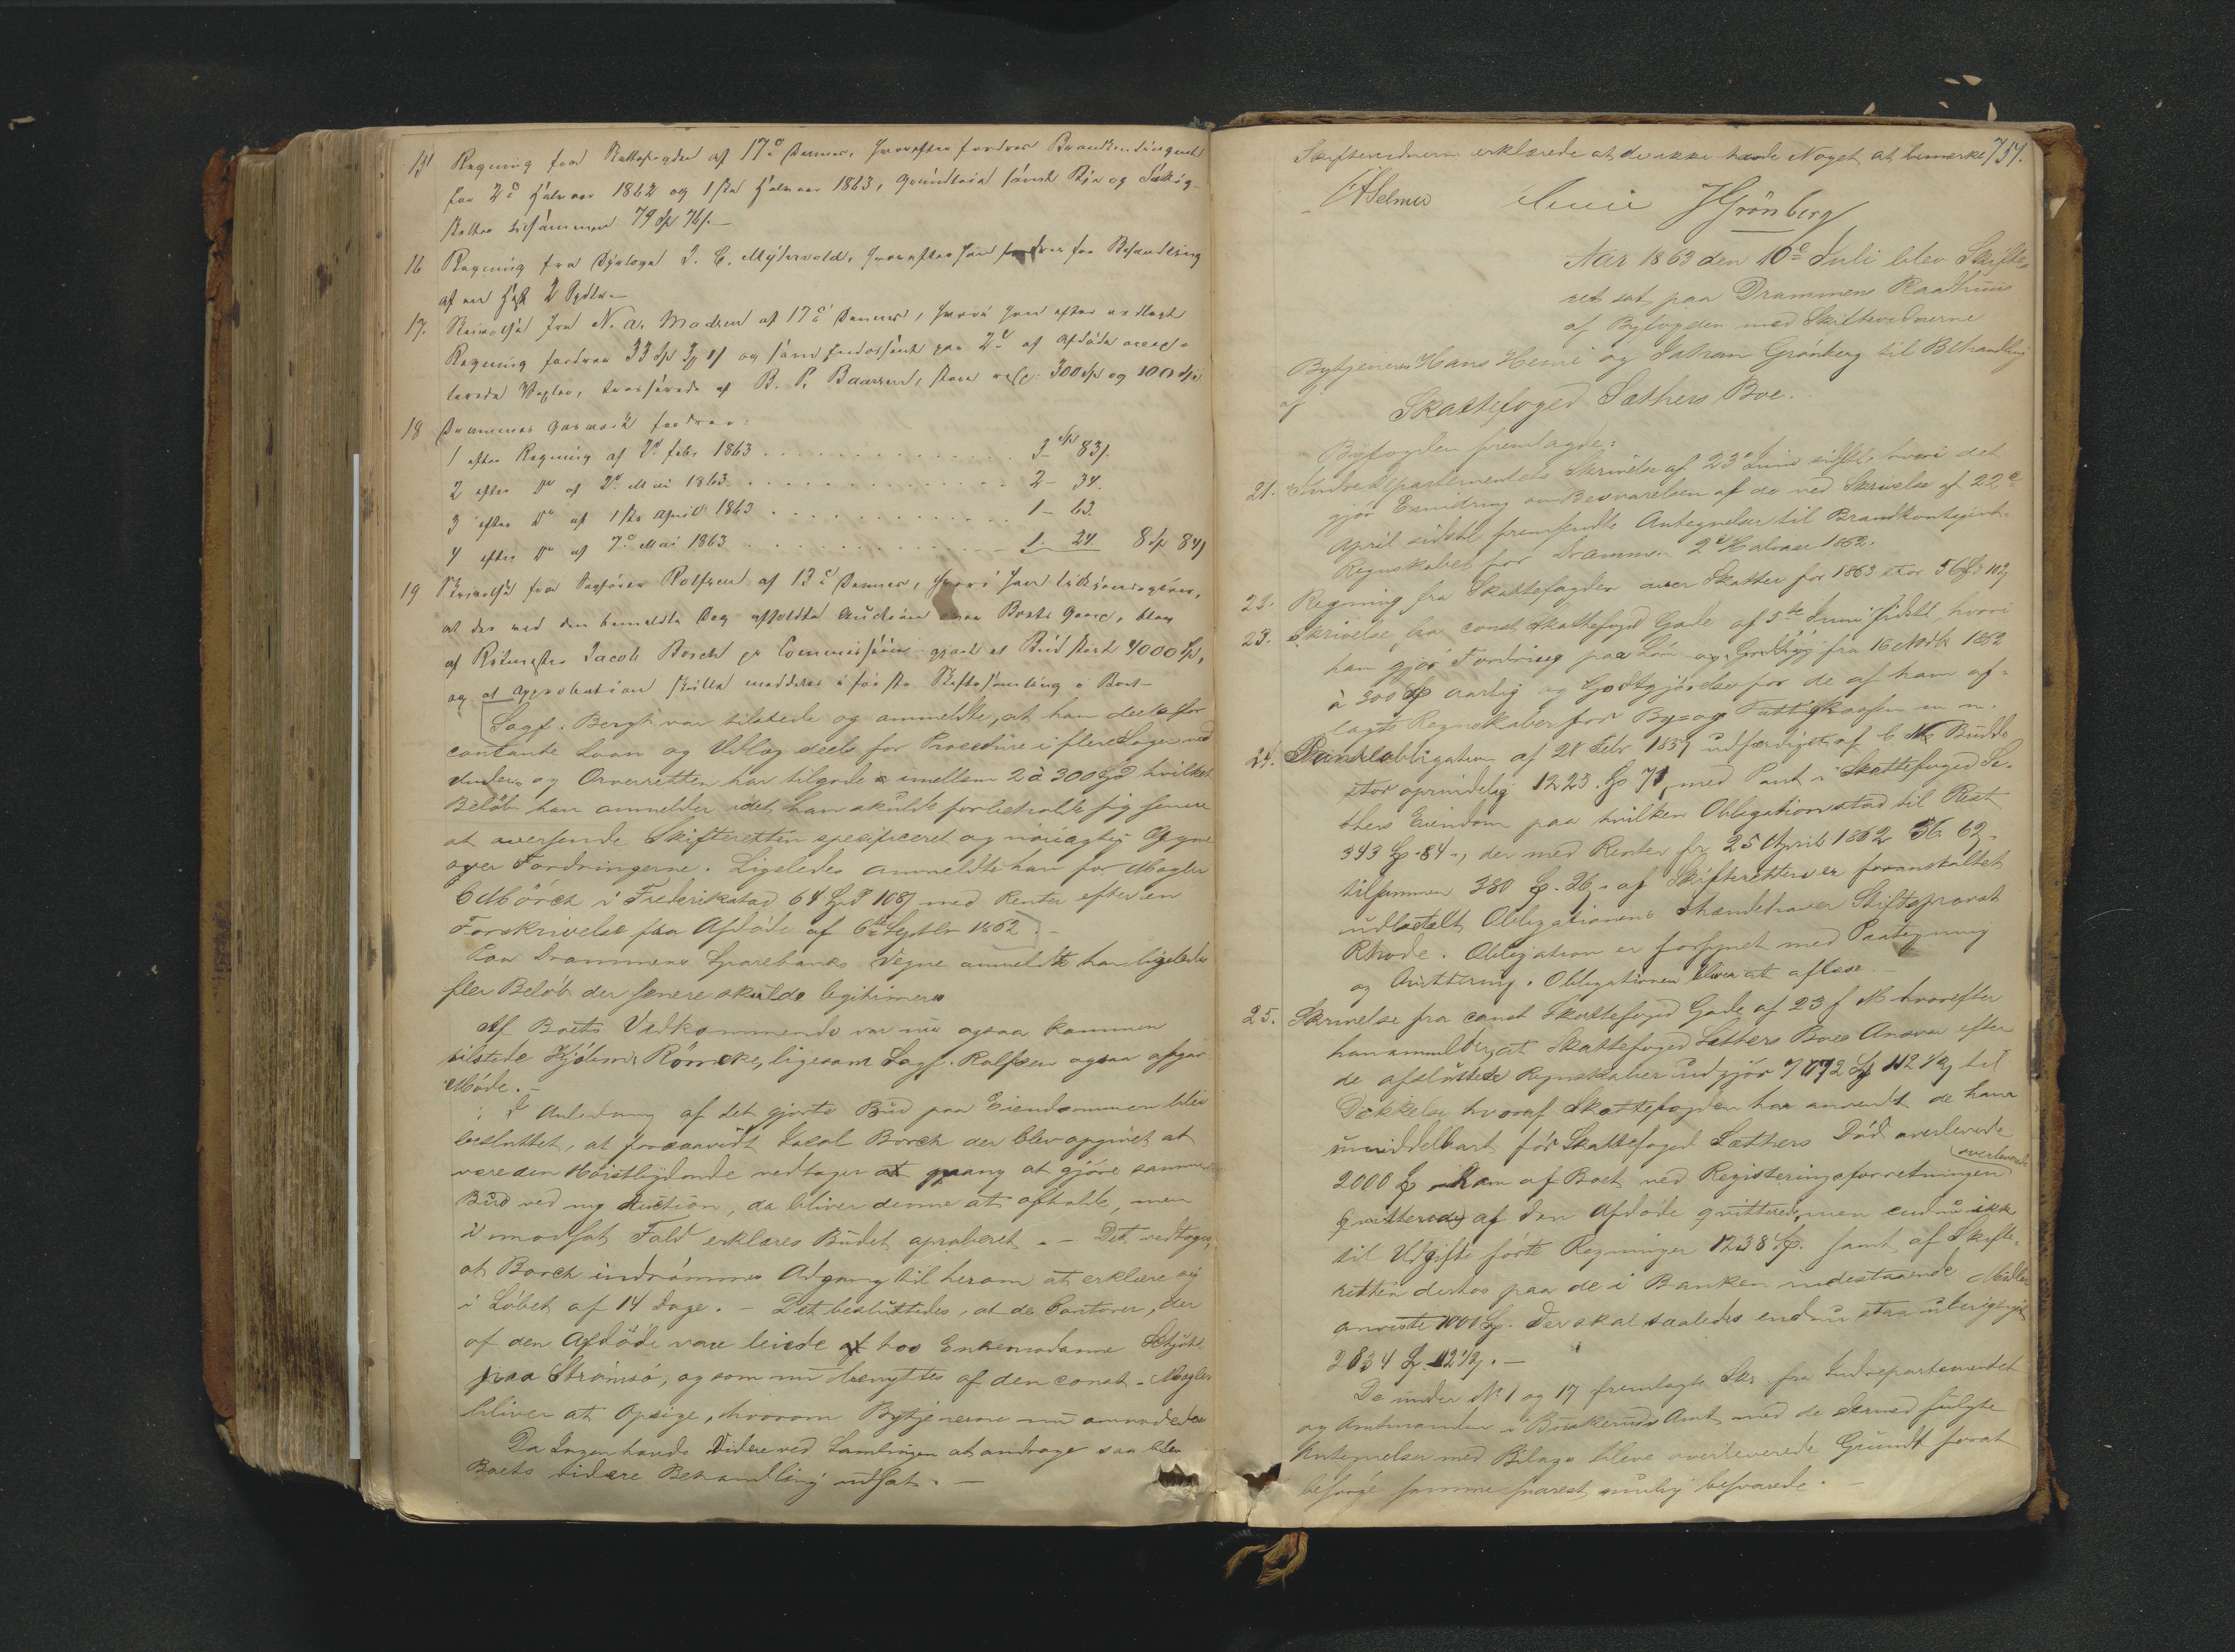 15 Regning fra Skattefogden af 17de dennes, hvorefter fordres Brandkontingent
for 2det Halvaar 1862 og 1ste Halvaar 1863, Grundleie samt Bye og
skatter tilsammen 79 Sp 76 s.
16 Regning fra Dyrlæge J. C. Myhrvold, hvorefter han fordrer for Behandling
af en Hest 2 Spdlr.
17. Skrivelse fra N. A. Madsen af 17de dennes, hvori han efter vedlagt
Regning fordrer 33 Sp og som Endossent paa 2de af Afdøde accep-
terede Vexler, trasserede af B. P. Baarsen, store resp. 300 Sp og 100 Sp
18 Drammens Gasværk fordrer:
1 efter Regning af 2d Febr 1863 . . . 3 Sp 83 s.
2 efter Do af 2d Mai 1863 . . . 2 - 34.
3 efter Do af 1ste April 1863 . . . 1 - 63.
4 efter Do af 7de Mai 1863 . . . 1. 24 8 Sp 84 s
19 Skrivelse fra Sagfører Rolfsen af 13de dennes, hvori han tilkjendegiver,
at der ved den bemeldte Dag afholdte Auction over Boets Gaard, blev
af Ritmester Jacob Borch pr Commissionair gjort et Bud stort 4000 Sp,
og at Approbation skulde meddeles i første Skiftesamling i Boet.
Sagf. Bergh var tilstede og anmeldte, at han deels for
contante Laan og Udlæg deels for Procedure i flere Sager ved
Under- og Overretten har tilgode imellem 2 à 300 Spd, hvilket
Beløb han anmelder idet han skulde forbeholde sig senere
at oversende Skifteretten specificeret og nøiagtig Opgave
over Fordringerne. Ligeledes anmeldte han for Mægler
C Mørch i Frederikstad 64 Spd 108 s med Renter efter en
Forskrivelse fra Afdøde af 6te Septbr 1862.
Paa Drammens Sparebanks Vegne anmeldte han ligeledes
fler Beløb der senere skulde legitimeres
Af Boets Vedkommende var nu ogsaa kommen
tilstede Hjelmer Römcke, ligesom Sagf. Rolfsen ogsaa afgav
Møde.
I Anledning af det gjorte Bud paa Eiendommen blev
besluttet, at forsaavidt Jacob Borch der blev opgivet at
være den Høistbydende vedtager at gjøre samme
Bud ved ny Auction, da bliver denne at afholde, men
i modsat Fald erklæres Budet aproberet. - Det vedtoges,
at Borch indrømmes Adgang til herom at erklære sig
i Løbet af 14 Dage. - Det besluttedes, at de Contorer, der
af den Afdøde vare leiede af hos Enkemadame
paa Strømsø, og som nu benyttes af den const. Mægler
bliver at opsige, hvorom Bytjenerne nu anmodedes
Da Ingen havde Videre ved Samlingen at andrage saa blev
Boets videre Behandling udsat. -
Skiftevidnerne erklærede at de ikke havde Noget at bemærke 757.
Selmer Heni J Grønberg
Aar 1863 den 10de Juli blev Skifte-
ret sat paa Drammens Raadhuus
af Byfogden med Skiftevidnerne
Bytjenerne Hans Heni og Johan Grønberg til Behandling
af Skattefoged Sæthers Boe.
Byfogden fremlagde:
21. Indredepartementets Skrivelse af 23de Juni sidstl. hvori det
gjør Erindring om Besvarelsen af de ved Skrivelse af 22de
April sidstl fremsendte Antegnelser til Brandkontingent-
Regnskabet for Drammen 2det Halvaar 1862.
22. Regning fra Skattefogden over Skatter for 1863 stor 56 Sp 102 s
23. Skrivelse fra const Skattefoged Gade af 5te Juni sidstl, hvori
han gjør Fordring paa Løn fra 16 Oktb 1862
à 300 Sp aarlig og Godtgjørelse for de af ham af-
lagte Regnskaber for By- og Fattigkassen m. m.
24. Panteobligation af 28 Febr 1857 udfærdiget af C M Budde
stor oprindelig 1223 Sp 71, med Pant i Skattefoged Sæ-
thers Eiendom paa hvilken Obligation stod til Rest
343 Sp 84 -, der med Renter fr 25 April 1862 36. 62.
tilsammen 380 Sp. 26 s. af Skifteretten er foranstaltet
udbetalt Obligationens Ihændehaver Stiftsprovst
Rhode. Obligation er forsynet med Paategning
og Qvittering. Obligationen bliver at aflæse.
25. Skrivelse fra const Skattefoged Gade af 23 f M hvorefter
han anmelder, at Skattefoged Sæthers Boes Ansvar efter
de afsluttede Regnskaber udgjør 7072 Sp 112 1/2 s til
Dækkelse hvoraf Skattefogden har anvendt de ham
umiddelbart før Skattefoged Sæthers Død overleverede
2000 Sp, ham af Boet ved Registeringsforretningen overleverede
qvitterede af den Afdøde qvitterede, men endnu ikke
til Udgift førte Regninger 1238 Sp. samt af Skifte-
retten derhos paa de i Banken indestaaende Midler
anviste 1000 Sp. Der skal saaledes endnu staa uberigtiget
2834 Sp. 112 1/2 s. -
De under No 1 og 17 fremlagte Skr. fra Indredepartementet
og Amtmanden i Buskeruds Amt med de dermed fulgte
Antegnelser med Bilage bleve overleverede Grundt forat
besørge samme snarest mulig besvarede. -